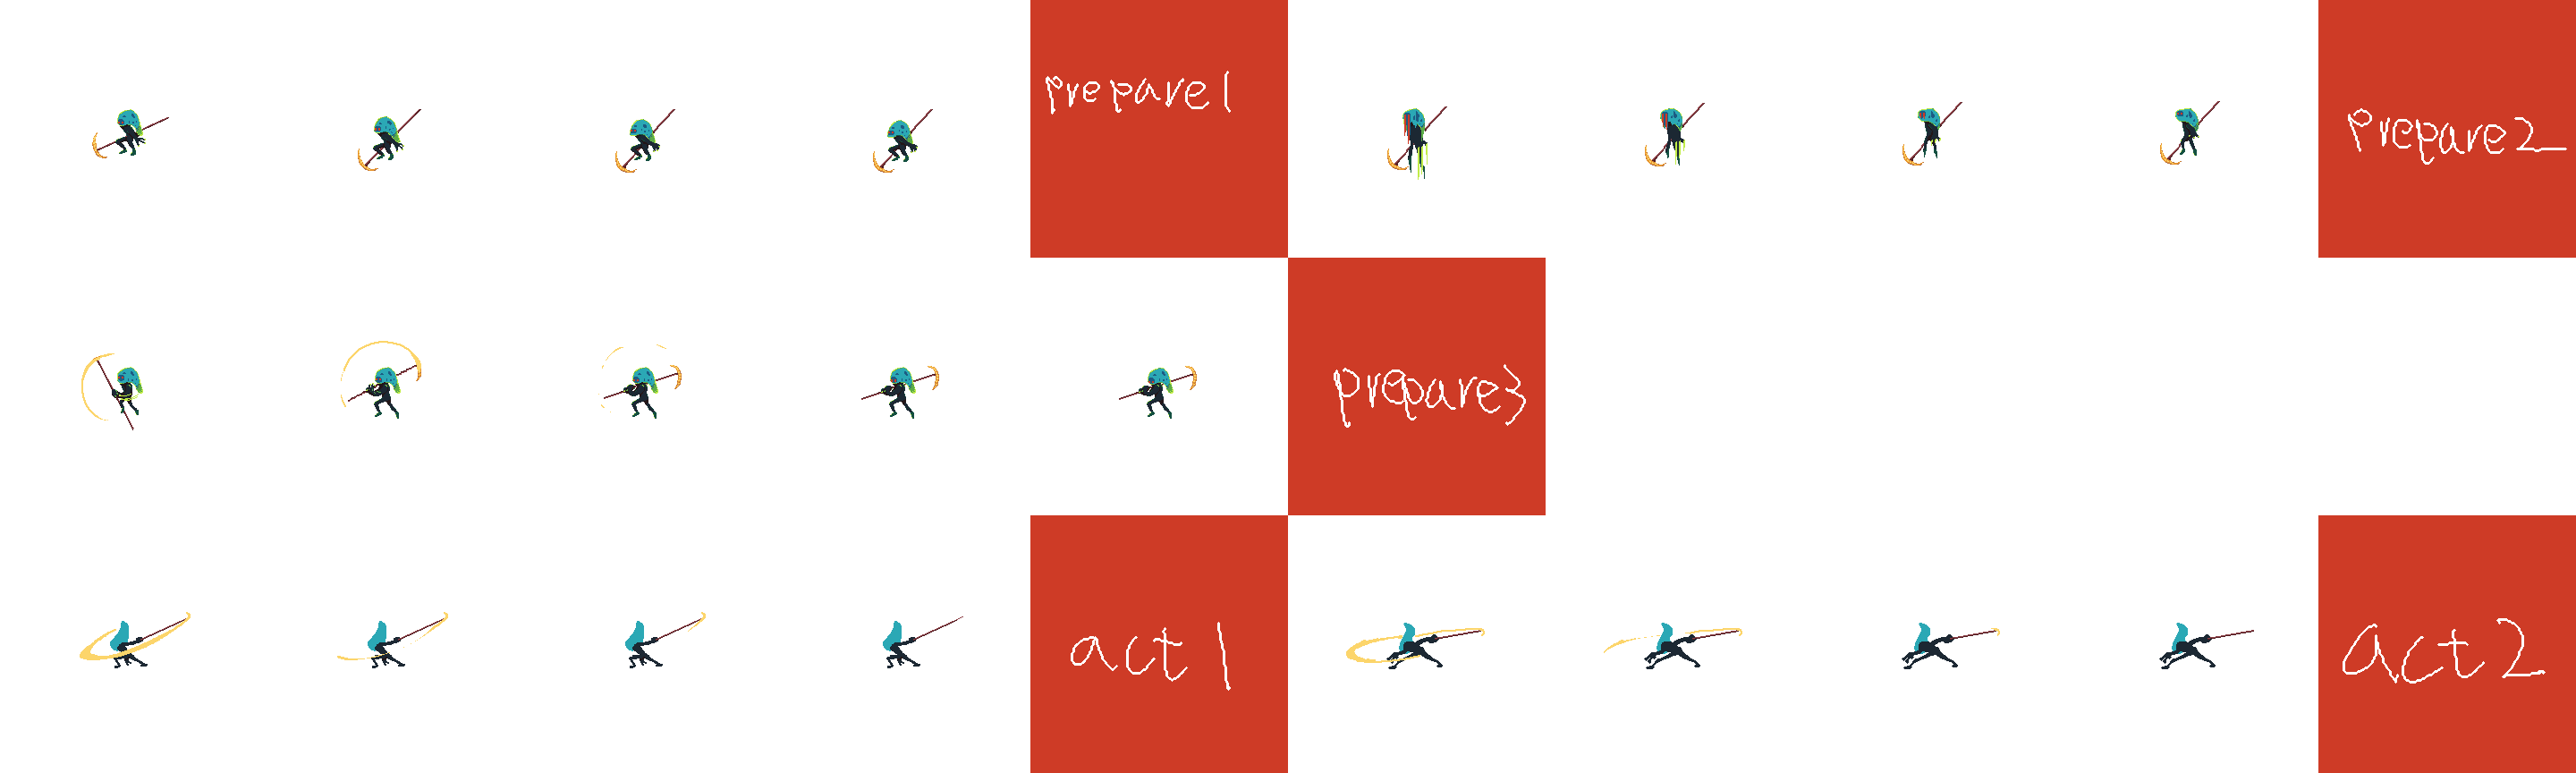 prepare1
prepare2
prepare3
act 1
act 2